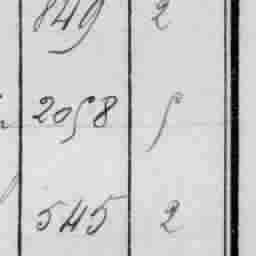 849 2
2058 5
545 2